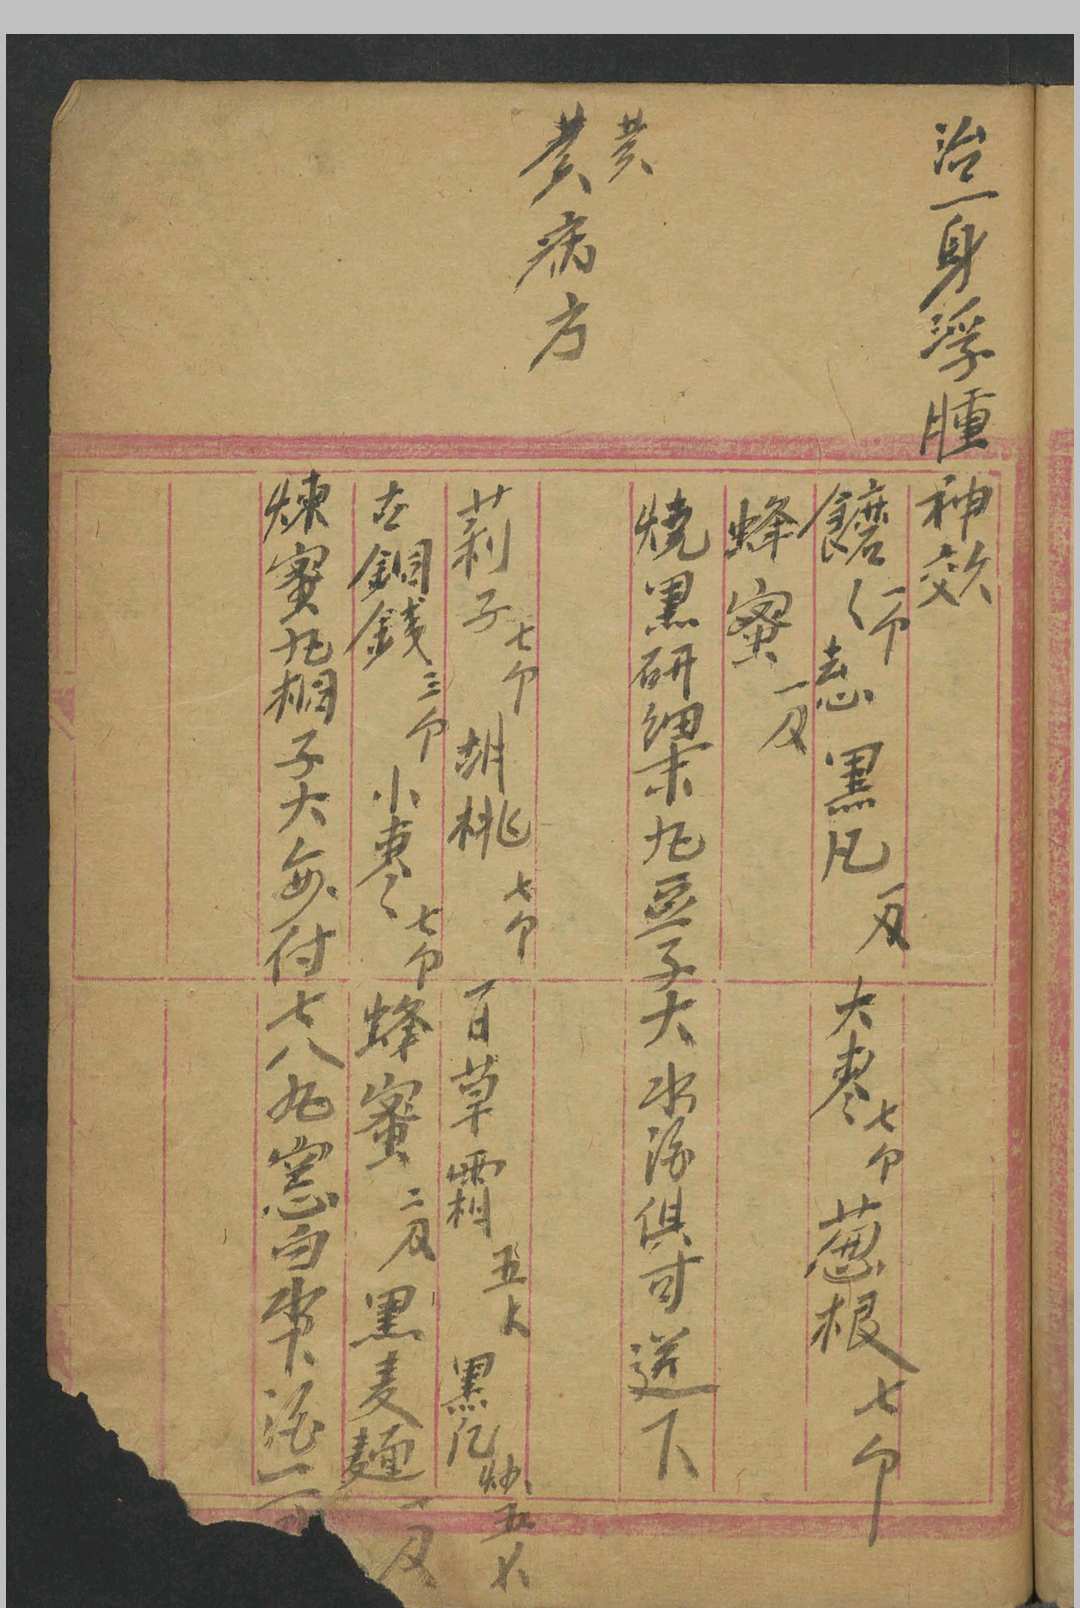 治一身浮腫
神效
饝〻一个 黑凡一双 大枣七个 葱根七个
蜂蜜一双
燒黑研細末丸豆子大水湯俱可送下
黄
黄病方
莿子七个 胡桃七个 百草霜五 黑凡炒五
古銅錢三个 小枣七个 蜂蜜二双 黑麦麺一双
煉蜜丸桐子大每付七八丸 白 湯一